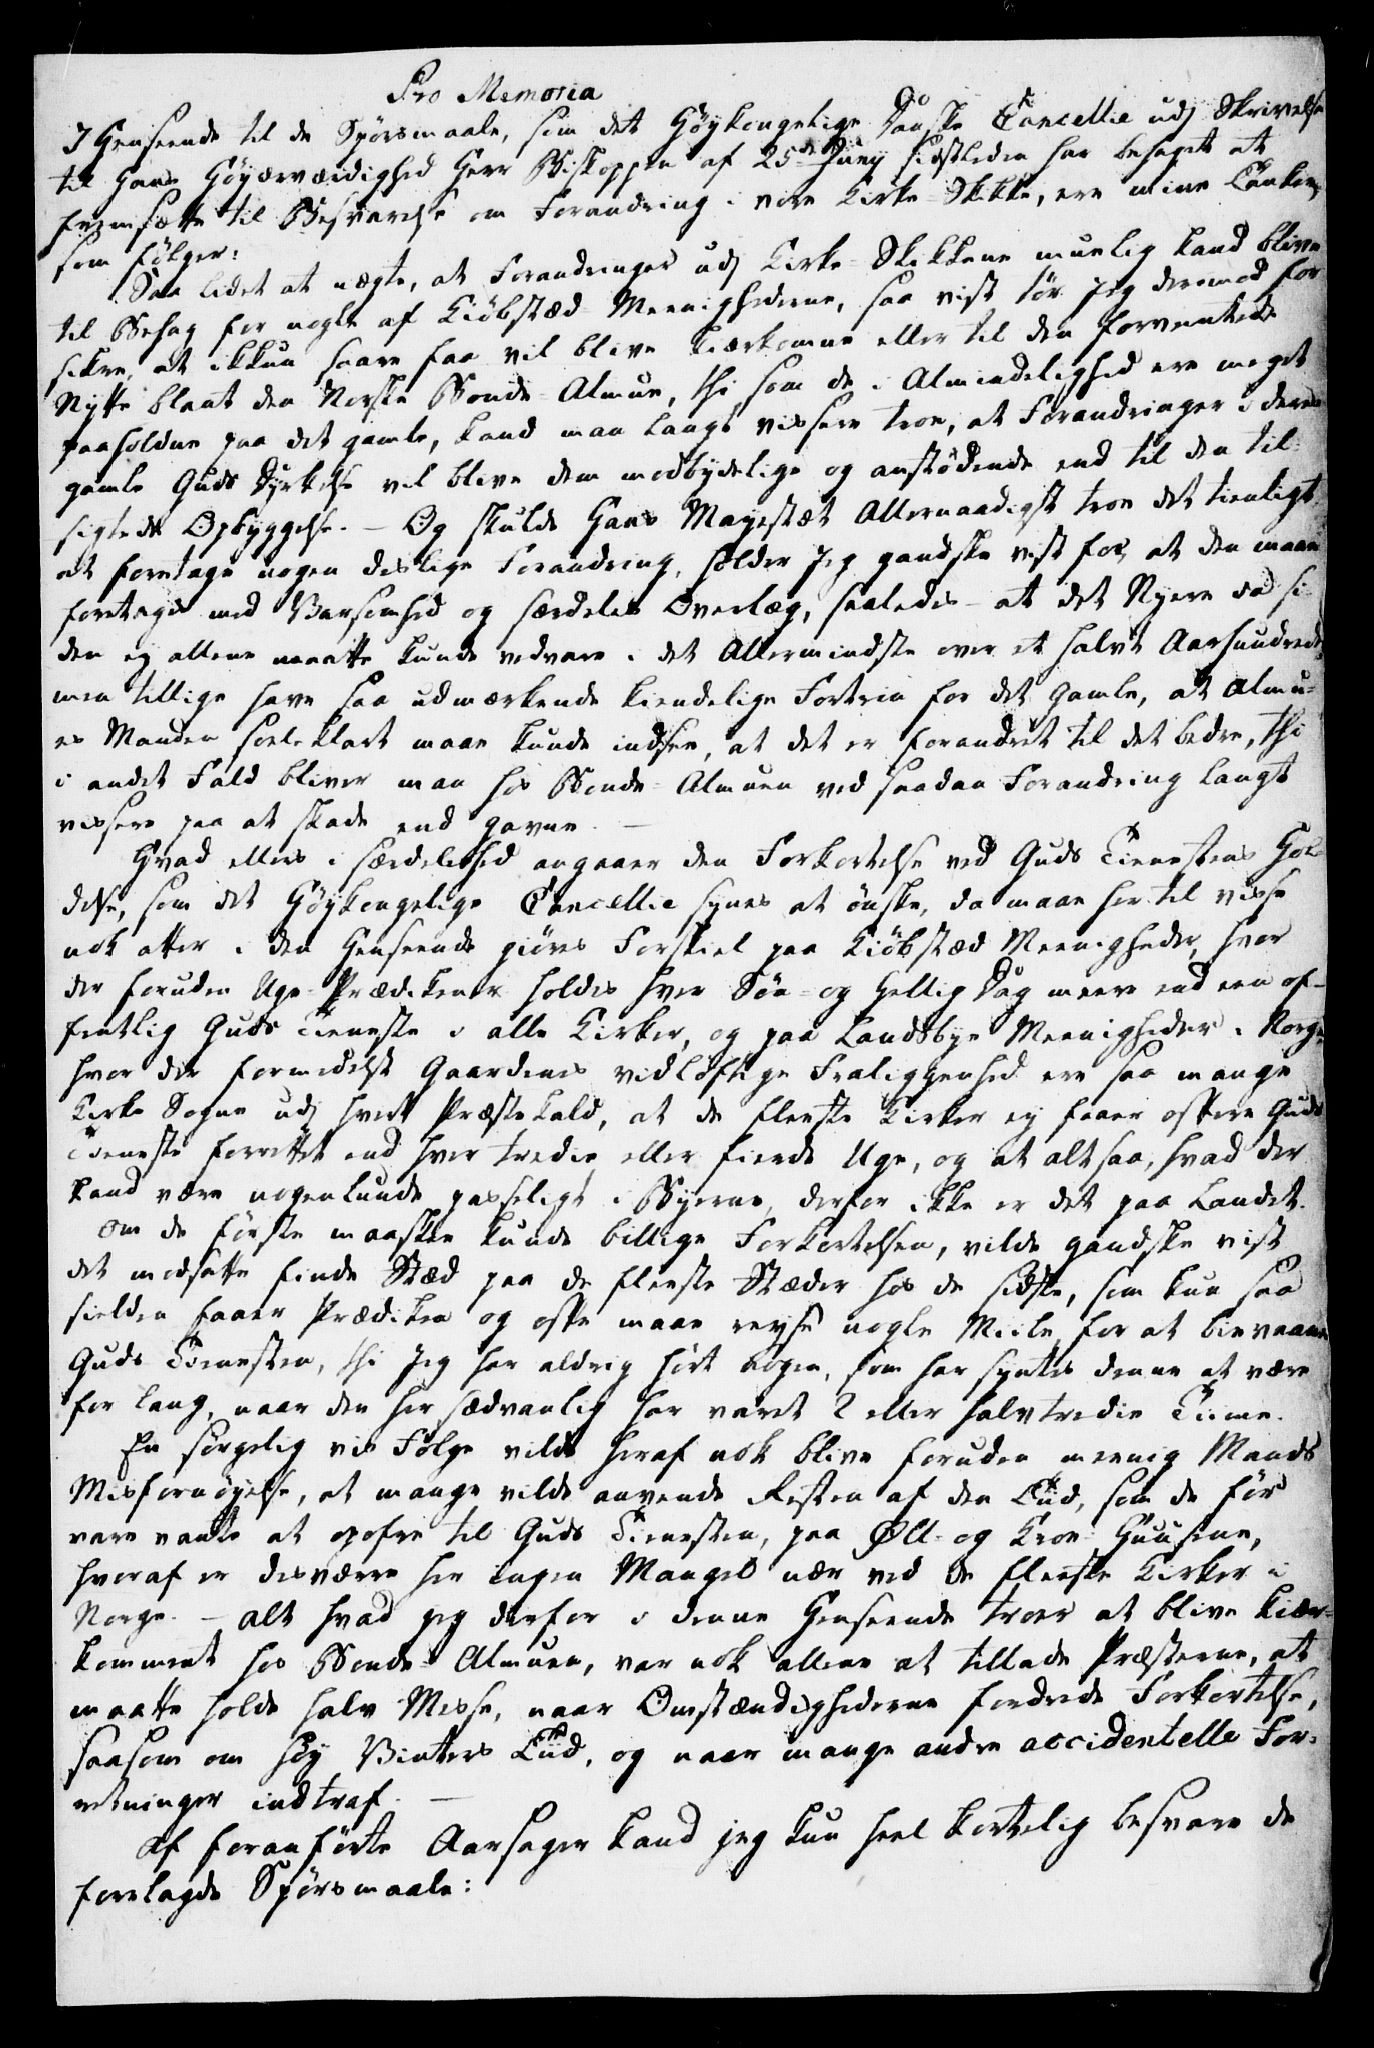 Pro Memoria
I Henseende til de Spörsmaale, som det Höykongelige Danske Cancellie udj Skrivelse
til Hans Höyærværdighed Herr Biskoppen af 25de Juny sidstleden har behaget at
fremsætte til Besvarelse om Forandring i vore Kirke-Skikke, ere mine Tanker
som fölger:
Saa lidet at nægte, at Forandringer udj Kirke-Skikkene muelig kand blive
til Behag for nogle af Kiöbstæd Meenighederne, saa vist tör jeg derimod for
sikre, at ikkun saare faa vil blive kierkomne eller til den forventede
Nytte blant den Norske Bonde-Almue, thi som de i Almindelighed ere meget
paaholdne paa det gamle, kand man langt vissere troe, at Forandringer i deres
gamle Guds Dyrkelse vil blive dem modbydelige og anstödende end til den til-
sigtede Opbyggelse. - Og skulde Hans Mayestæt Allernaadigst troe det tienligt
at foretage nogen deslige Forandring, holder jeg gandske vist for, at den maae
foretages med Varsomhed og særdeles Overlæg, saaledes - at det Nyere da si-
den ej allene maatte kunde vedvare i det Allermindste over et halvt Aarhundrede,
men tillige have saa udmærkende kiendelige Fortrin for det gamle, at Almu-
es Manden soele klart maae kunde indsee, at det er forandret til det bedre, thi
i andet Fald bliver man hos Bonde-Almuen ved saadan Forandring langt
vissere paa at skade end gavne. -
Hvad ellers i særdeleshed angaaer den Forkortelse ved Guds Tienestens Hol-
delse, som det Höykongelige Cancellie synes at önske, da maae her til visse
nok atter i den Henseende giöres Forskiel paa Kiöbstæd Meenigheder, hvor
der foruden Uge-Prædikener holdes hver Sön- og Hellig Dag meere end een of-
fentlig Guds Tieneste i alle Kirker, og paa Landsbye Meenigheder i Norge
hvor der formedelst Gaardenes vidlöftige Fraliggenhed ere saa mange
Kirke Sogne udj hvert Præste Kald, at de fleeste Kirker ej faaer oftere Guds
Tieneste forrettet end hver tredie eller fierde Uge, og at altsaa, hvad der
kand være nogenlunde passeligt i Byerne, derfor ikke er det paa Landet.
Om de förste maaskee kunde billige Forkortelsen, vilde gandske vist
det modsatte finde Stæd paa de fleeste Stæder hos de sidste, som kun saa
sielden faaer Prædiken og ofte maae reyse nogle Miile, for at bievaane
Guds Tienesten, thi jeg har aldrig hört nogen, som har syntes denne at være
for lang, naar den her sædvanlig har varet 2 eller halvtredie Tiime.
En sörgelig vis Fölge vilde heraf nok blive foruden meenig Mands
Misfornöyelse, at mange vilde anvende Resten af den Tiid, som de för
vare vante at opofre til Guds Tienesten, paa Øll- og Kroe-Huusene,
hvoraf er desværre her ingen Mangel nær ved de fleeste Kirker i
Norge. - Alt hvad jeg derfor i denne Henseende troer at blive kier-
kommet hos Bonde-Almuen, var nok allene at tillade Præsterne, at
maatte holde halv Messe, naar Omstændighederne fordrede Forkortelse,
saasom om höy Vinters Tiid, og naar mange andre accidentelle For-
retninger indtraf. -
Af foranförte Aarsager kand jeg kun heel kortelig besvare de
forelagde Spörsmaale: